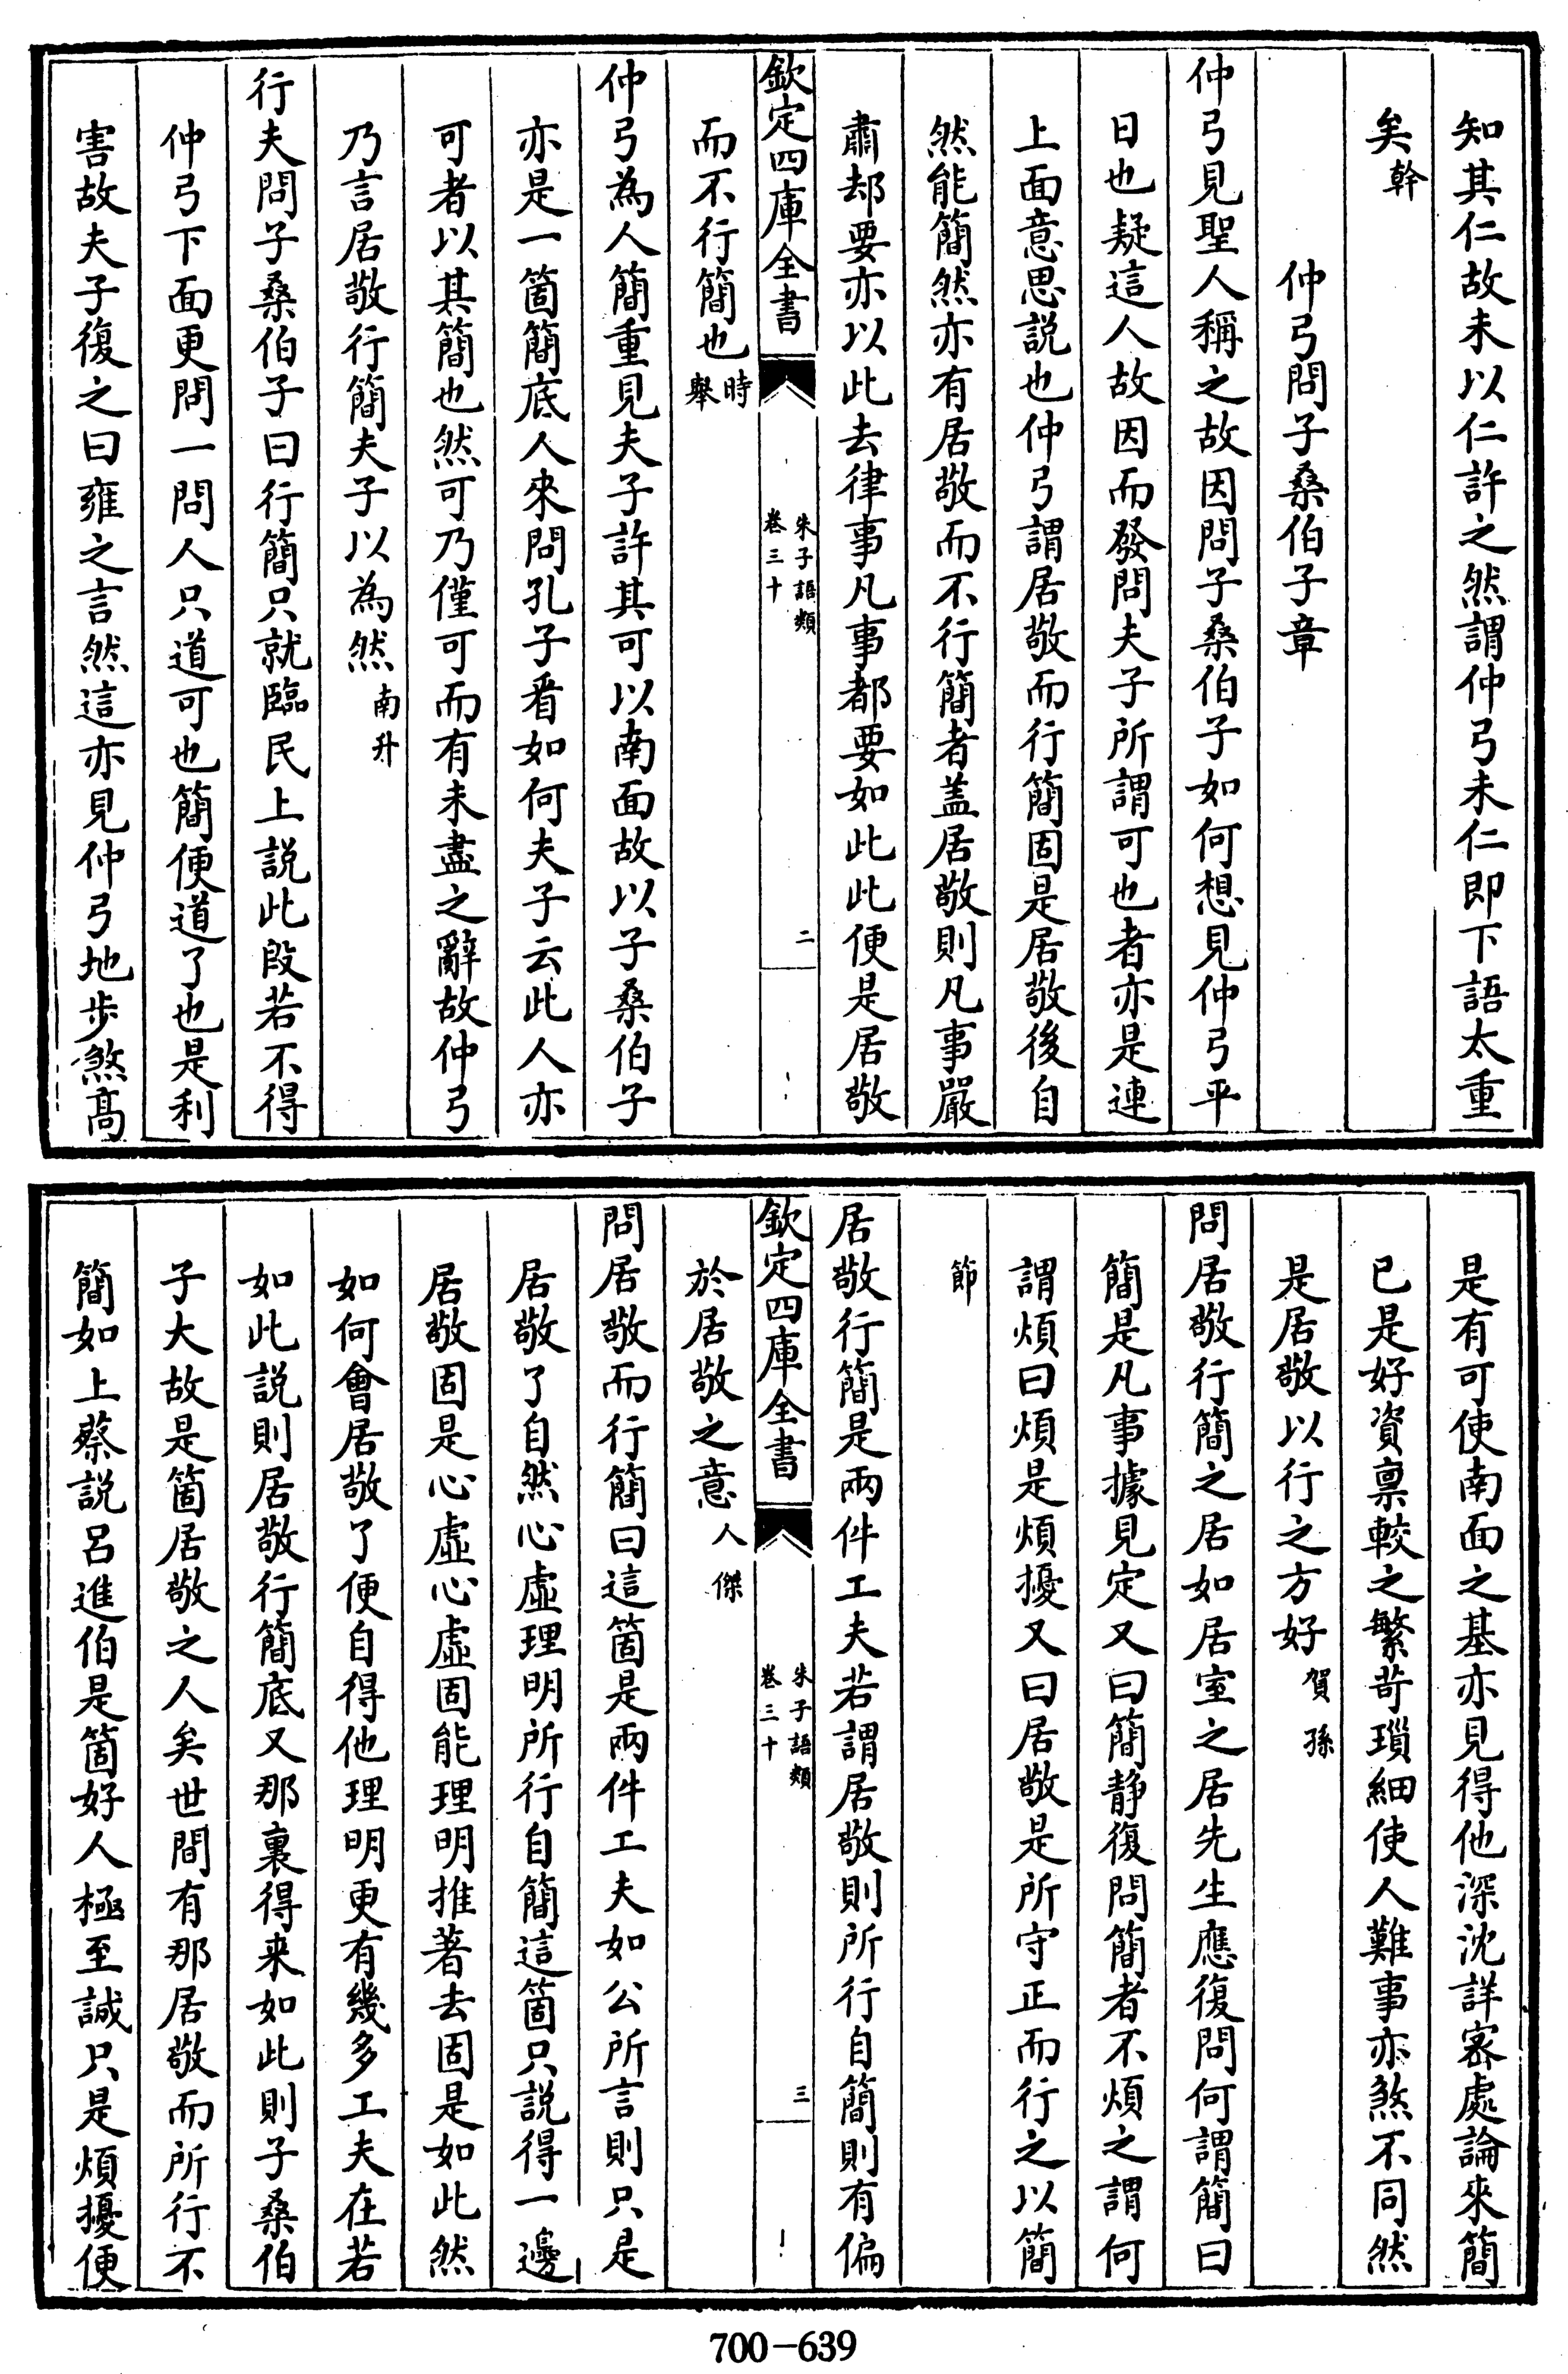 知其仁故未以仁許之然謂仲弓未仁即下語太重
矣幹
仲弓問子桑伯子章
仲弓見聖人稱之故因問子桑伯子如何想見仲弓平
日也疑這人故因而發問夫子所謂可也者亦是連
上面意思説也仲弓謂居敬而行簡固是居敬後自
然能簡然亦有居敬而不行簡者蓋居敬則凡事嚴
肅却要亦以此去律事凡事都要如此此便是居敬
欽定四庫全書
朱子語類
卷三十
二
而不行簡也時舉
仲弓為人簡重見夫子許其可以南面故以子桑伯子
亦是一箇簡底人來問孔子看如何夫子云此人亦
可者以其簡也然可乃僅可而有未盡之辭故仲弓
乃言居敬行簡夫子以為然南升
行夫問子桑伯子曰行簡只就臨民上説此段若不得
仲弓下面更問一問人只道可也簡便道了也是利
害故夫子復之曰雍之言然這亦見仲弓地步煞髙
是有可使南面之基亦見得他深沈詳宻處論來簡
已是好資禀較之繁苛瑣細使人難事亦煞不同然
是居敬以行之方好賀孫
問居敬行簡之居如居室之居先生應復問何謂簡曰
簡是凡事據見定又曰簡静復問簡者不煩之謂何
謂煩曰煩是煩擾又曰居敬是所守正而行之以簡
節
居敬行簡是兩件工夫若謂居敬則所行自簡則有偏
欽定四庫全書
朱子語類
卷三十
三
於居敬之意人傑
問居敬而行簡曰這箇是兩件工夫如公所言則只是
居敬了自然心虚理明所行自簡這箇只説得一邊
居敬固是心虚心虚固能理明推著去固是如此然
如何會居敬了便自得他理明更有幾多工夫在若
如此説則居敬行簡底又那裏得来如此則子桑伯
子大故是箇居敬之人矣世間有那居敬而所行不
簡如上蔡説吕進伯是箇好人極至誠只是煩擾便
700-639